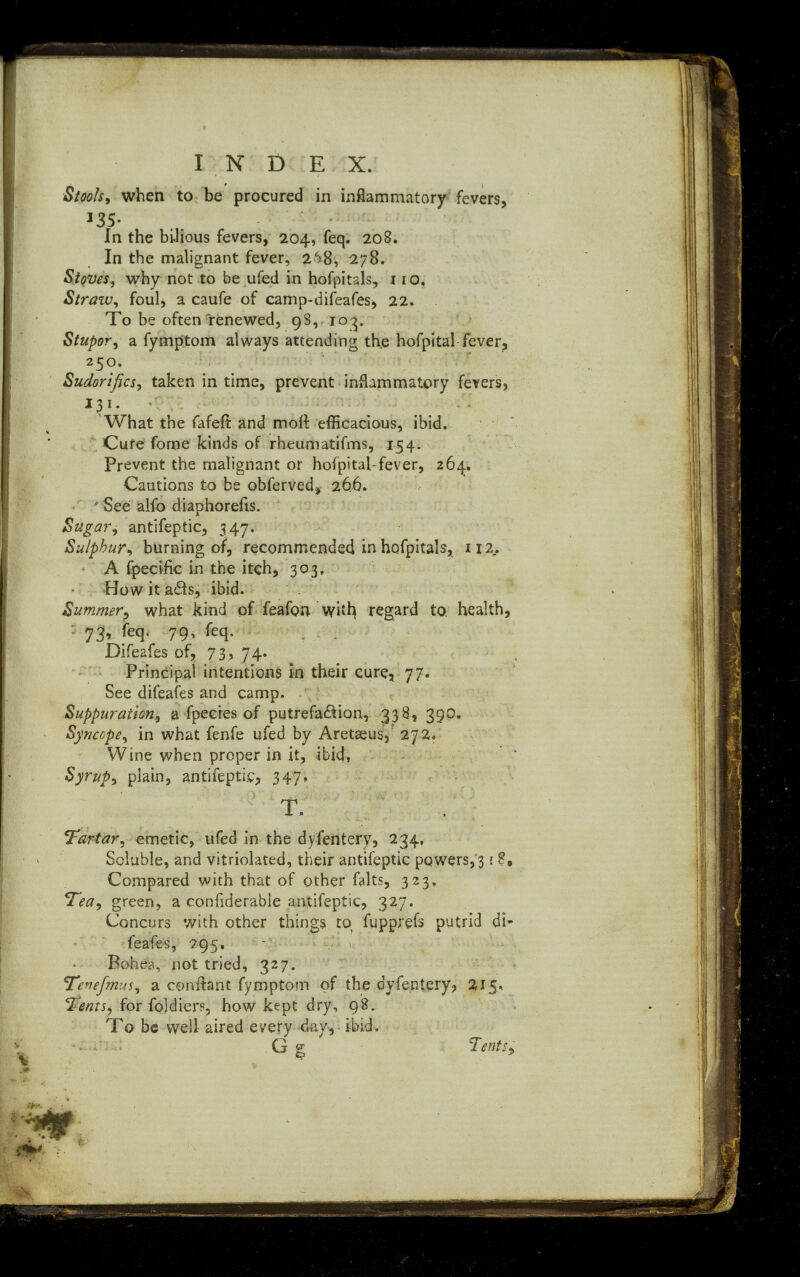 INDEX.
Stools, when to be procured in inflammatory fevers,
135.
In the bilious fevers, 204, ſeq. 208.
In the malignant fever, 268, 278.
Stoves, why not to be uſed in hoſpitals, 110.
Straw, foul, a cauſe of camp-diſeaſes, 22.
To be often renewed, 98, 103.
Stupor, a ſymptom always attending the hoſpital fever,
250.
Sudorifics, taken in time, prevent inflammatory fevers,
131.
What the ſafeſt and moſt efficacious, ibid.
Cure ſome kinds of rheumatiſms, 154.
Prevent the malignant or hoſpital-fever, 264.
Cautions to be obſerved, 266.
See alſo diaphoreſis.
Sugar, antiſeptic, 347.
Sulphur, burning of, recommended in hoſpitals, 112.
A ſpecific in the itch, 303.
How it acts, ibid.
Summer, what kind of ſeaſon with regard to health,
73, ſeq. 79, ſeq.
Diſeaſes of, 73, 74.
Principal intentions in their cure, 77.
See diſeaſes and camp.
Suppuration, a ſpecies of putrefaction, 338, 390.
Syncope, in what ſenſe uſed by Aretæus, 272.
Wine when proper in it, ibid.
Syrup, plain, antiſeptic, 347.
T.
Tartar, emetic, uſed in the dyſentery, 234.
Soluble, and vitriolated, their antiſeptic powers, 318.
Compared with that of other ſalts, 323.
Tea, green, a conſiderable antiſeptic, 327.
Concurs with other things to ſuppreſs putrid di-
ſeaſes, 295.
Bohea, not tried, 327.
Teneſmus, a conſtant ſymptom of the dyſentery, 215.
Tents, for ſoldiers, how kept dry, 98.
To be well aired every day, ibid.
G g Tents,